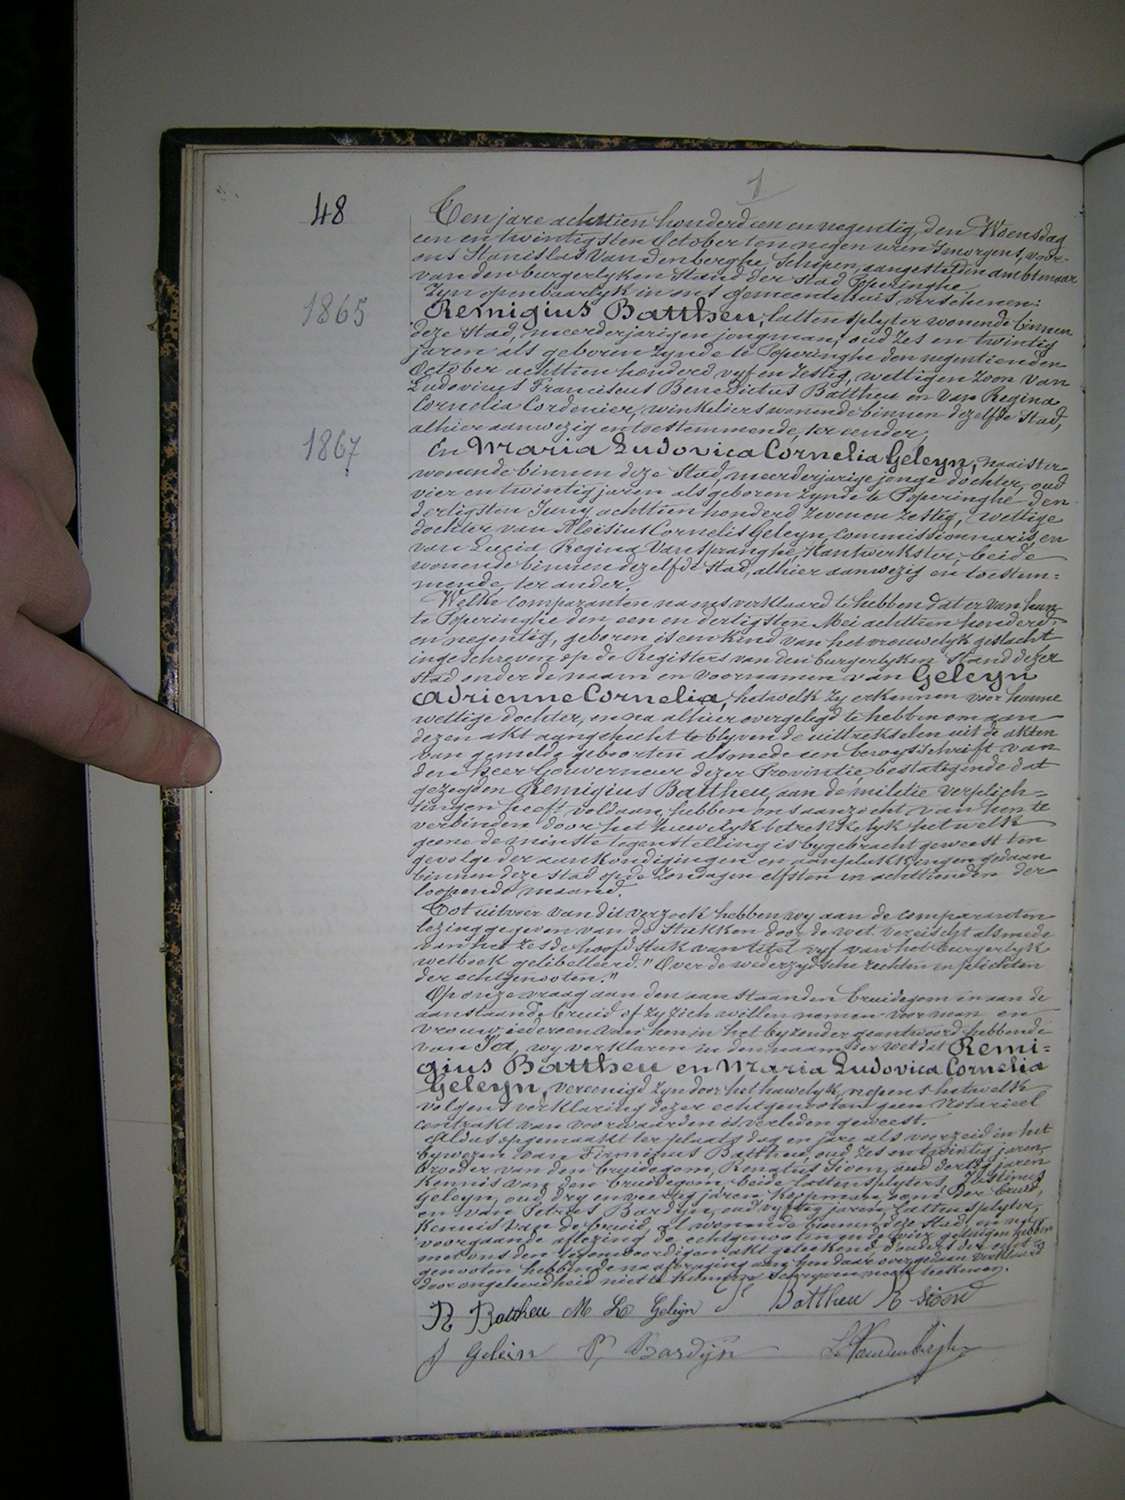 1
48
Ten jare achttien honderd een en negentig, den Woensdag
een en twintigsten October ten negen uren 's morgens, voor
ons Stanislas Vandenberghe, Schepen, aangestelden ambtenaar
van den burgerlyken Stand der stad Poperinghe,
Zyn openbaarlyk in ons gemeentehuis verschenen:
1865
Remigius Battheu, lattensplyter wonende binnen
deze stad, meerderjarigen jongman, oud zes en twintig
jaren als geboren zynde te Poperinghe den negentienden
October achttien honderd vyf en zestig, wettigen zoon van
Ludovicus Franciscus Benedictus Battheu en van Regina
Cornelia Cordenier, winkeliers wonende binnen dezelfde stad,
alhier aanwezig en toestemmende, ter eender,
1867
En Maria Ludovica Cornelia Geleyn, naaister
wonende binnen deze stad, meerderjarige jonge dochter, oud
vier en twintig jaren als geboren zynde te Poperinghe den
dertigsten Juny achttien honderd zeven en zestig, wettige
dochter van Aloisius Cornelis Geleyn, commissionnaris, en
van Lucia Regina Vanspranghe, Kantwerkster, beide
wonende binnen dezelfde stad, alhier aanwezig en toestem=
mende ter ander.
Welke comparanten na ons verklaard te hebben dat er van hun
te Poperinghe den een en dertigsten Mei achttien honderd
en negentig, geboren is een kind van het vrouwelyk geslacht
ingeschreven op de Registers van den burgerlyken Stand dezer
stad onder de naam en voornamen van Geleyn
Adrienne Cornelia, hetwelk zy erkennen voor hunne
wettige dochter, en na alhier overgelegd te hebben om aan
dezen akt aangehecht te blyven de uittreksels uit de akten
van gemelde geboorten alsmede een bewysschrift van
den Heer Gouverneur dezer Provintie, bestatigende dat
gezegden Remigius Battheu, aan de militie verplich=
tingen heeft voldaan, hebben ons aanzocht van hen te
verbinden door het huwelyk betrekkelyk hetwelk
geene de minste tegenstelling is bygebracht geweest ten
gevolge der aankondigingen en aanplakkingen gedaan
binnen deze stad op de zondagen elfsten en achttienden der
loopende maand.
Tot uitvoer van dit verzoek hebben wy aan de comparanten
lezing gegeven van de stukken door de wet vereischt alsmede
van het zesde hoofdstuk van titel vyf van het burgerlyk
wetboek gelibelleerd "Over de wederzydsche rechten en plichten
der echtgenooten."
Op onze vraag aan den aanstaanden bruidegom en aan de
aanstaande bruid of zy zich willen nemen voor man en
vrouw, iedereen van hen in het byzonder geantwoord hebbende
van Ja, wy verklaren in den naam der wet dat Remi=
gius Battheu en Maria Ludovica Cornelia
Geleyn, vereenigd zyn door het huwelyk, nopens hetwelk
volgens verklaring dezer echtgenooten geen Notarieel
contrakt van voorwaarden is verleden geweest.
Aldus opgemaakt ter plaats dag en jare als voorzeid in het
bywezen van Firminus Battheu, oud zes en twintig jaren,
broeder van den bruidegom, Renatus Sioen, oud dertig jaren
kennis van den bruidegom, beide lattensplyters, Justinus
Geleyn, oud dry en veertig jaren, koopman, oom der bruid,
en van Petrus Bardyn, oud vyftig jaren, lattensplyter,
kennis van de bruid, al wonende binnen deze stad, en na
voorgaande aflezing de echtgenooten en de vier getuigen hebben
met ons den tegenwoordigen akt geteekend, d'ouders der echt=
genooten hebbende na afvraging aan hen daar over gedaan verklaard
door ongeleerdheid niet te kunnen schryven noch teekenen.
R Battheu M L Geleyn F Battheu R Sioen
J Gelein P, Bardyn S. Vandenberghe